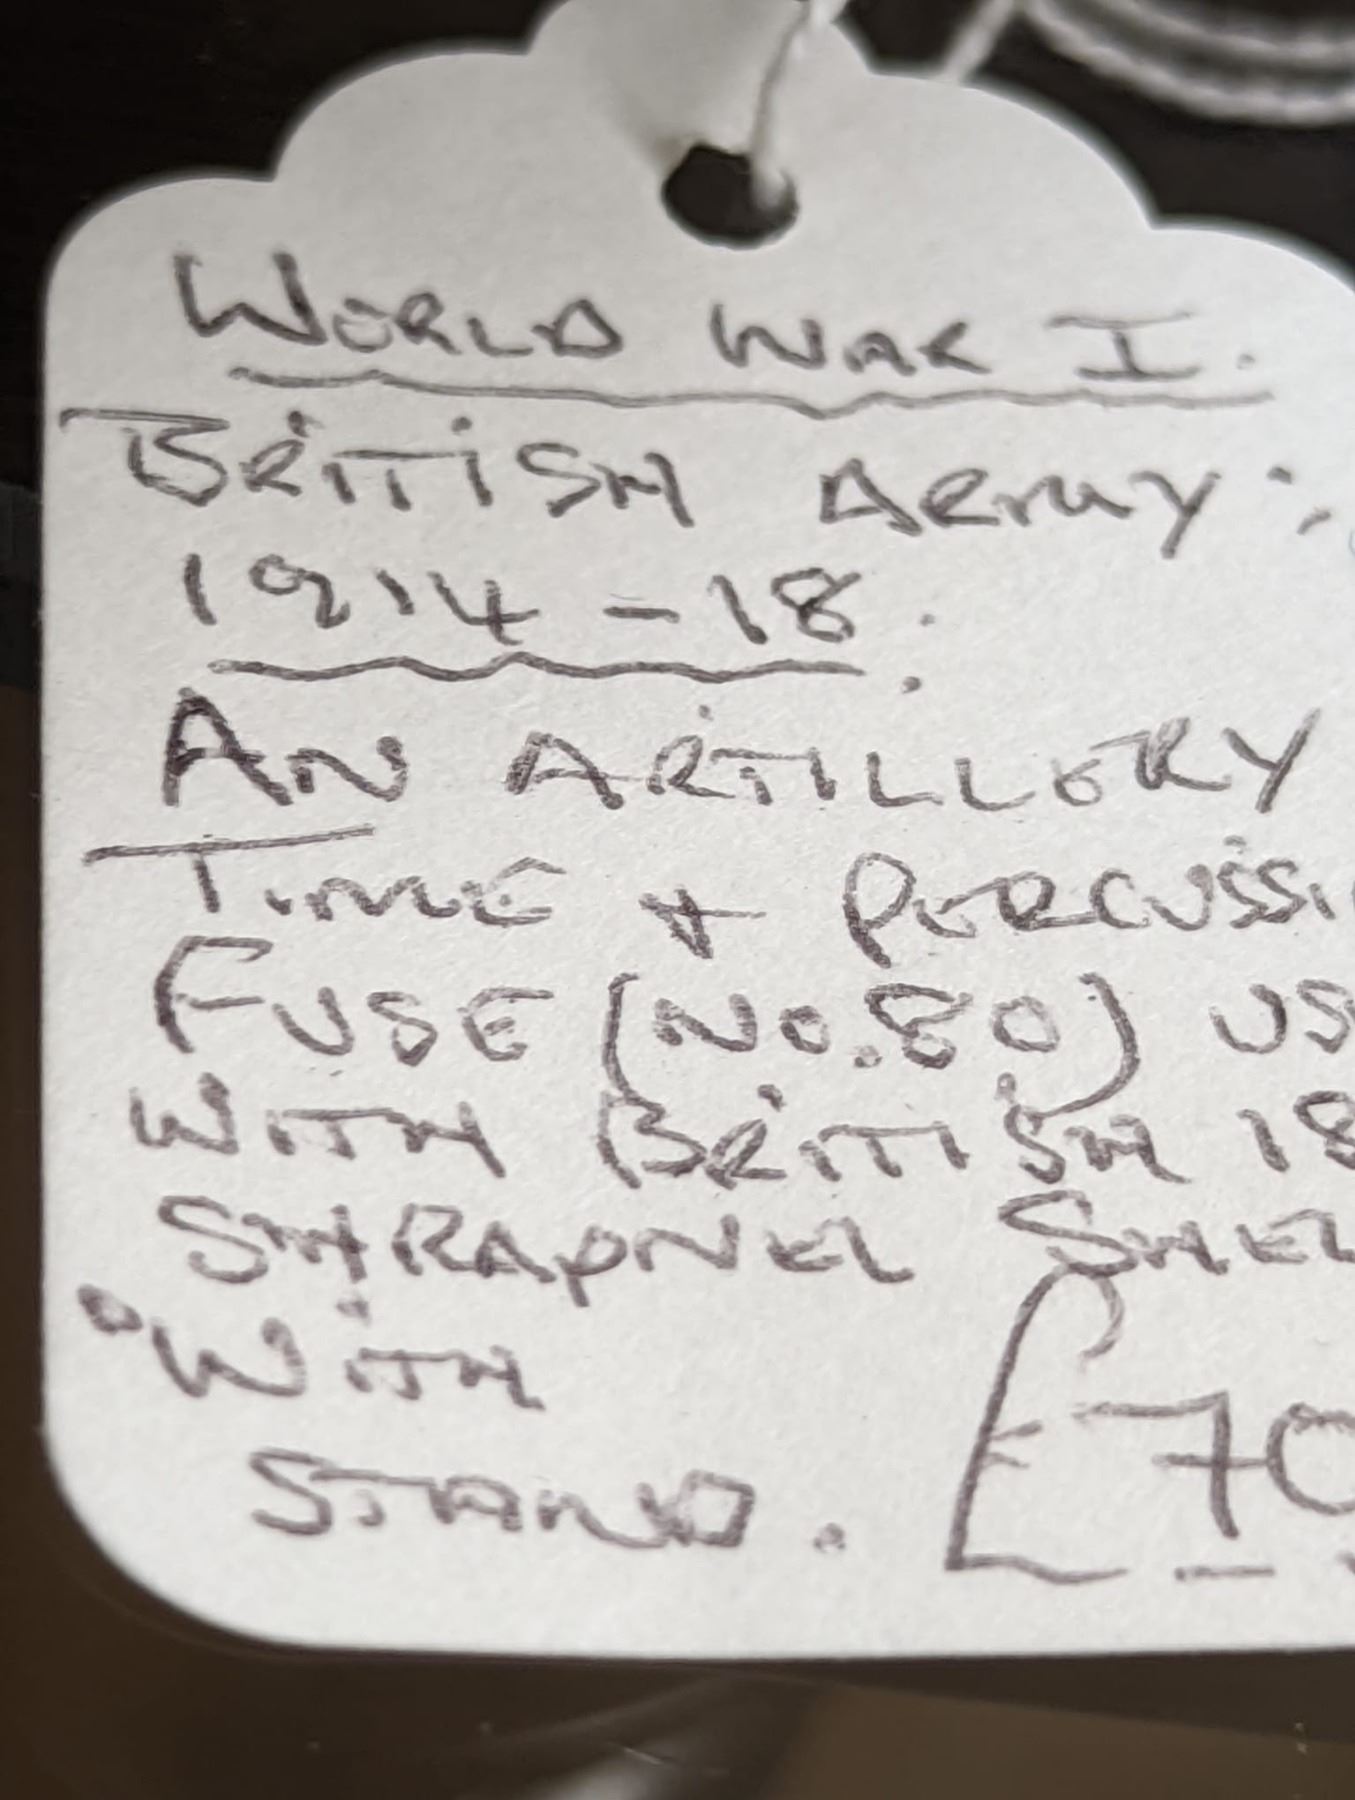 WORLD WAR I.
BRITISH ARMY:
1914-18.
AN ARTILLERY
TIME + PERCUSSI
FUSE (NO.80) US
WITH BRITISH 18
SHRAPNEL SHEL
WITH
STAND. £70